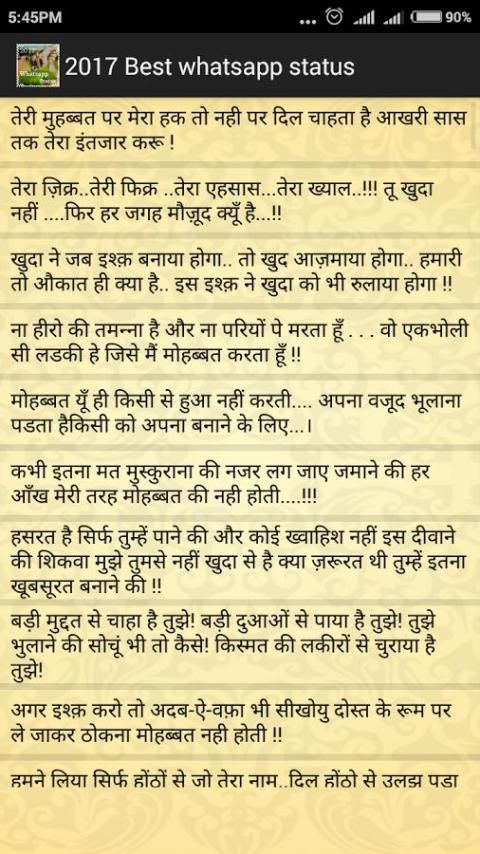 5:45PM
90%
2017 Best whatsapp status
तेरी मुहब्बत पर मेरा हक तो नही पर दिल चाहता है आखरी सास
तक तेरा इंतजार करू !
तेरा ज़िक्र..तेरी फिक्र ..तेरा एहसास...तेरा ख्याल..!!! तू खुदा
नहीं ....फिर हर जगह मौज़ूद क्यूँ है...!!
खुदा ने जब इश्क़ बनाया होगा.. तो खुद आज़माया होगा.. हमारी
तो औकात ही क्या है.. इस इश्क़ ने खुदा को भी रुलाया होगा !!
ना हीरो की तमन्ना है और ना परियों पे मरता हूँ . . . वो एकभोली
सी लडकी हे जिसे मैं मोहब्बत करता हूँ !!
मोहब्बत यूँ ही किसी से हुआ नहीं करती.... अपना वजूद भूलाना
पडता हैकिसी को अपना बनाने के लिए...।
कभी इतना मत मुस्कुराना की नजर लग जाए जमाने की हर
आँख मेरी तरह मोहब्बत की नही होती....!!!
हसरत है सिर्फ तुम्हें पाने की और कोई ख्वाहिश नहीं इस दीवाने
की शिकवा मुझे तुमसे नहीं खुदा से है क्या ज़रूरत थी तुम्हें इतना
खूबसूरत बनाने की !!
बड़ी मुद्दत से चाहा है तुझे! बड़ी दुआओं से पाया है तुझे! तुझे
भुलाने की सोचूं भी तो कैसे! किस्मत की लकीरों से चुराया है
तुझे!
अगर इश्क़ करो तो अदब-ऐ-वफ़ा भी सीखोयु दोस्त के रूम पर
ले जाकर ठोकना मोहब्बत नही होती !!
हमने लिया सिर्फ होंठों से जो तेरा नाम..दिल होंठो से उलझ पड़ा